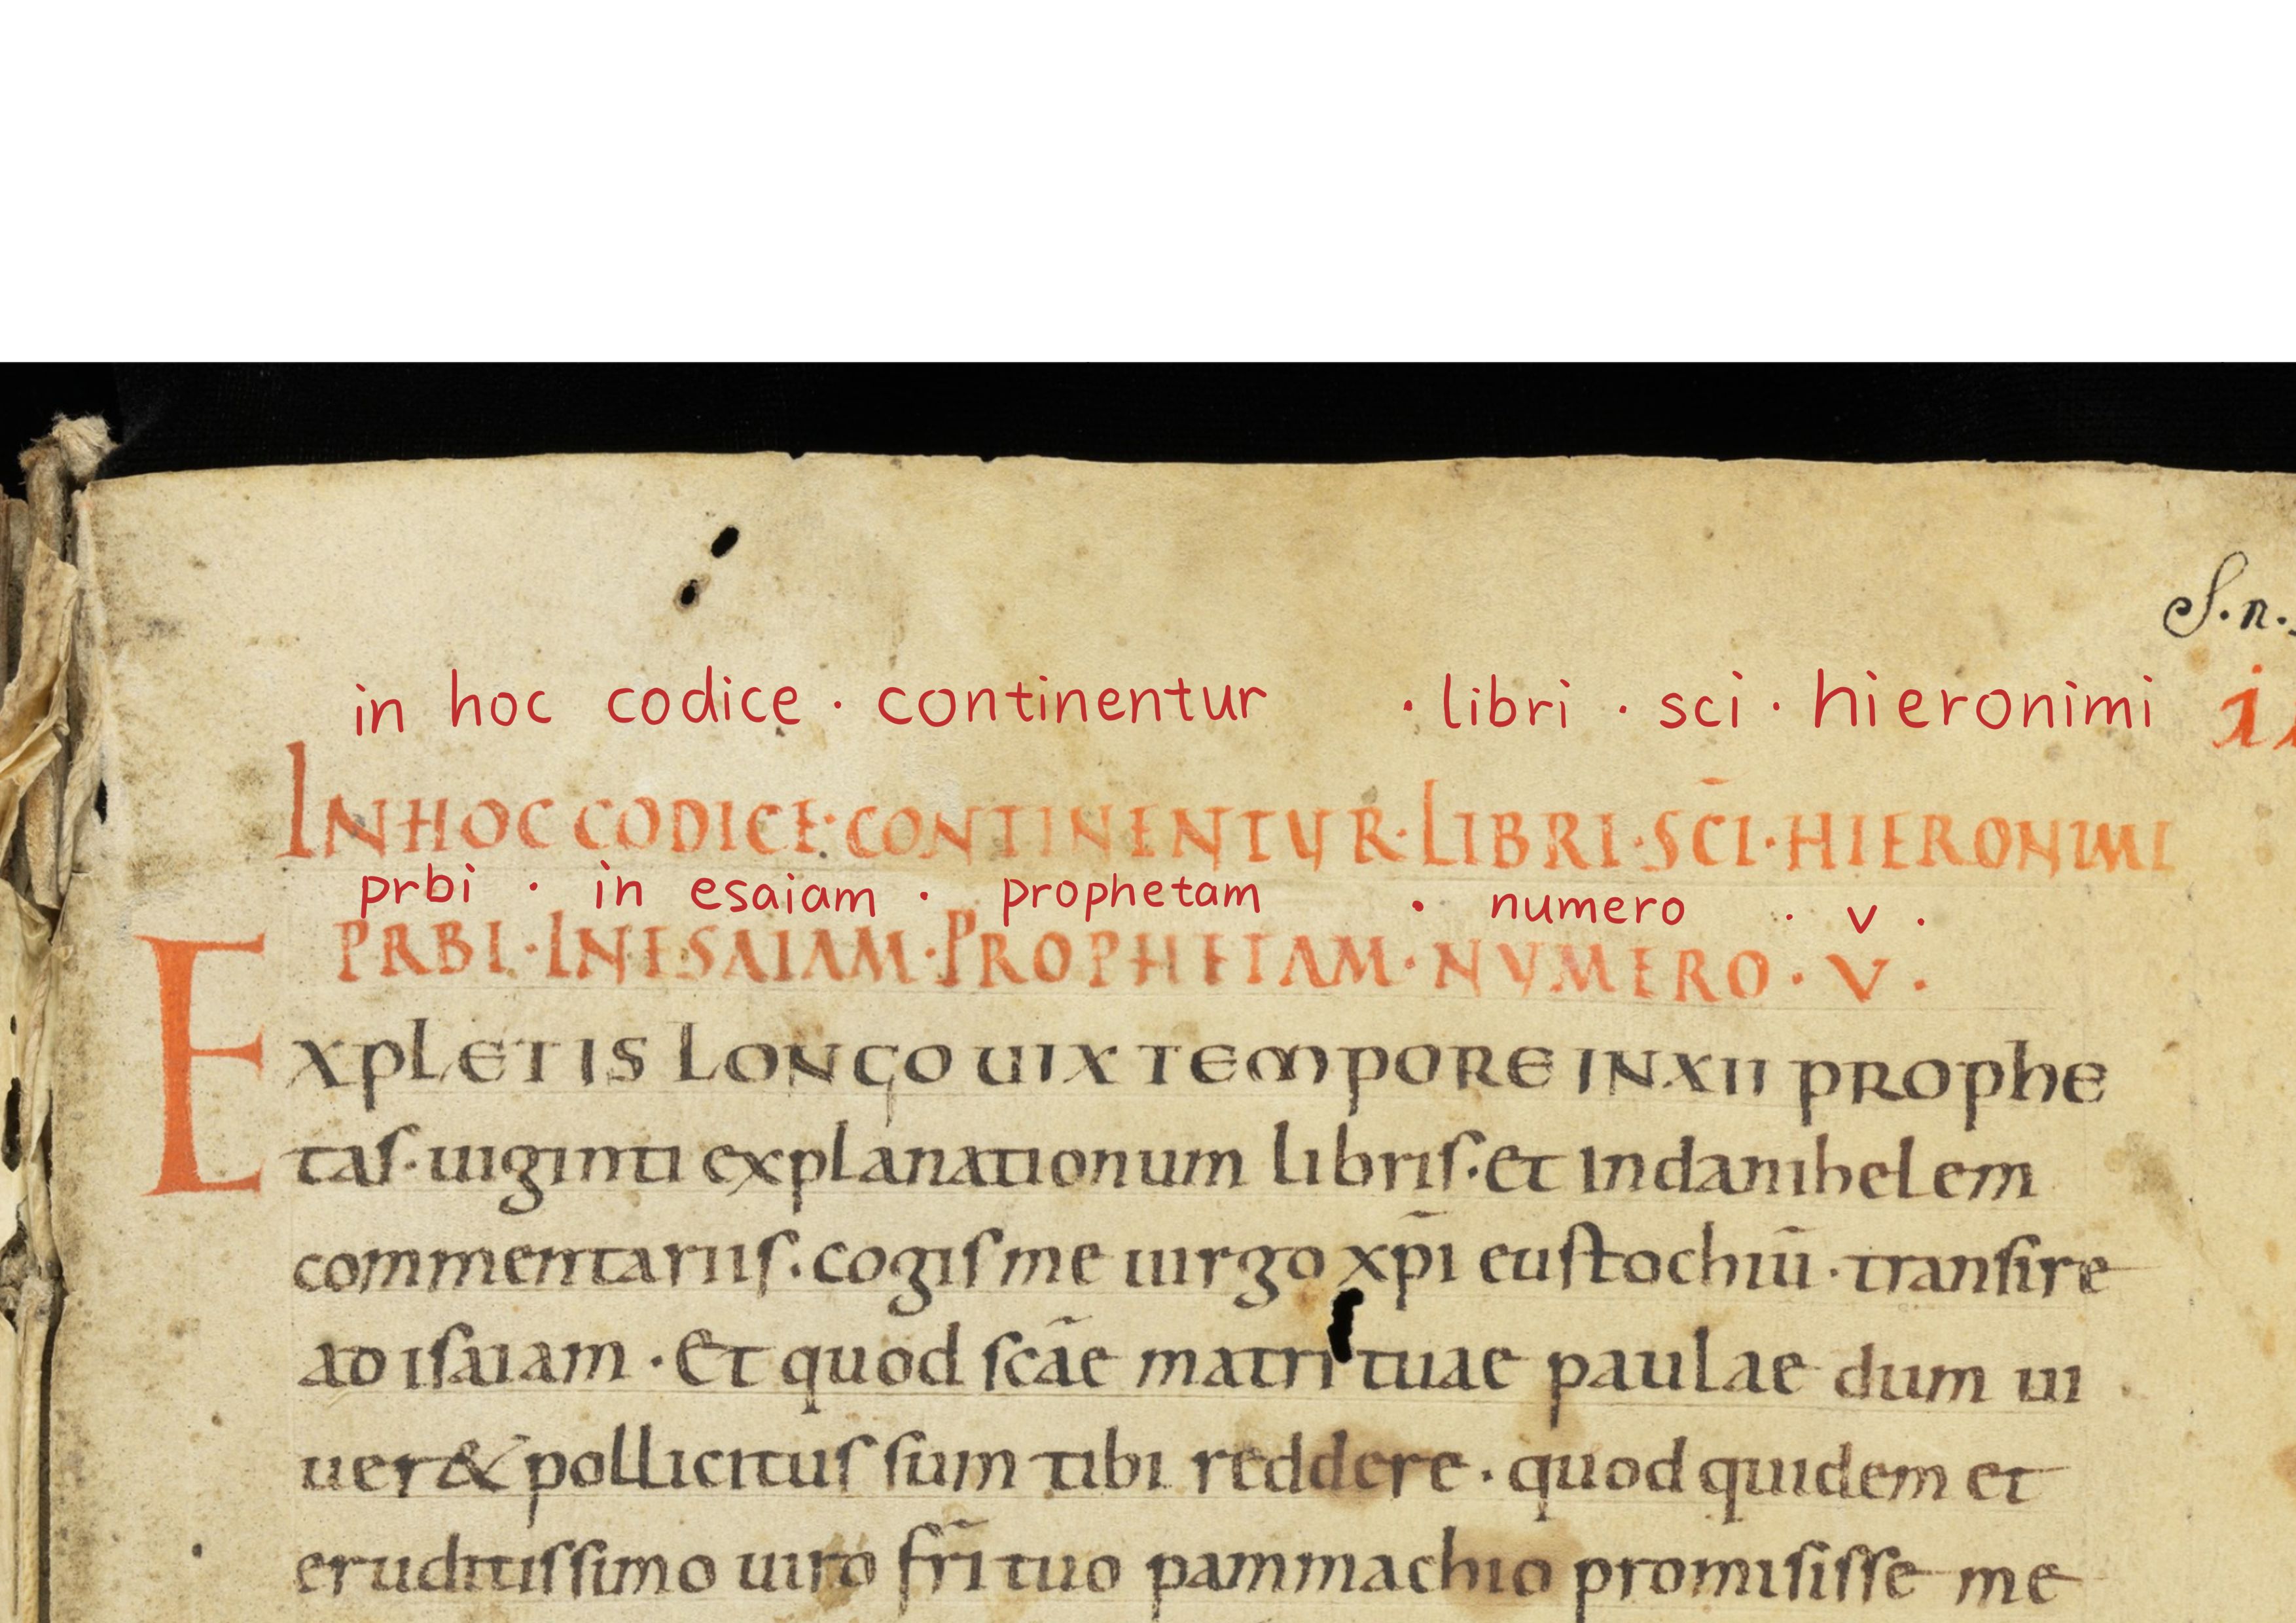 S.n.
in hoc codice · continentur · libri · sci · hieronimi
INHOC CODICE·CONTINENTUR·LIBRI·SC̄I·HIERONIMI
prbi · in esaiam · prophetam · numero · v ·
PRBI·INESAIAM·PROPHETAM·NVMERO·V·
EXPLETIS LONGO UIX TEMPORE INXII PROPHE
taſ·uiginti explanationum libriſ·et Indanihelem
commentariiſ·cogiſ me uirgo xp̄i euſtochiū·tranſire
ad iſaiam·Et quod ſc̄ae matri tuae paulae dum ui
uer& pollicituſ ſum tibi reddere·quod quidem et
eruditiſſimo uiro fr̄i tuo pammachio promiſiſſe me